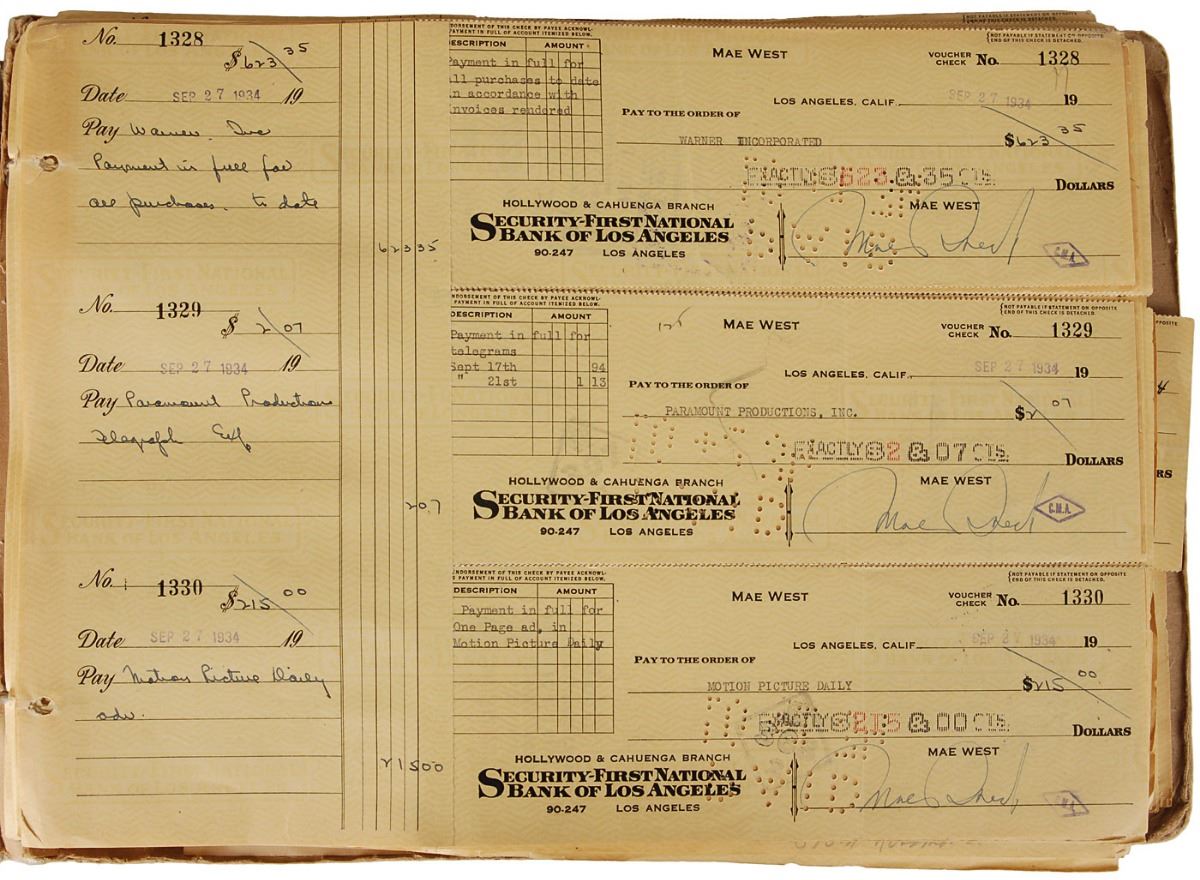 No. 1328
$623 35
Date SEP 27 1934 19
Pay Warner. Inc
Payment in full for
all purchases to date
623 35
No. 1329
$ 2/07
Date SEP 27 1934 19
Pay Paramount Productions
Telegraph Exp
2 07
No. 1330
$215 00
Date SEP 27 1934 19
Pay Motion Picture Daily
adv.
215 00
NDORSEMENT OF THIS CHECK BY PAYEE ACKNOWL-
PAYMENT IN FULL OF ACCOUNT ITEMIZED BELOW.
ESCRIPTION AMOUNT
Payment in full for
ll purchases to date
n accordance with
nvoices rendered
NOT PAYABLE IF STATEMENT ON OPPOSITE
END OF THIS CHECK IS DETACHED.
MAE WEST
VOUCHER CHECK No. 1328
LOS ANGELES, CALIF. SEP 27 1934 19
PAY TO THE ORDER OF
WARNER INCORPORATED $623 35
EXACTLY $623 & 35 CTS DOLLARS
HOLLYWOOD & CAHUENGA BRANCH
SECURITY-FIRST NATIONAL
BANK OF LOS ANGELES
90-247 LOS ANGELES
MAE WEST
Mae West
G.M.A.
NDORSEMENT OF THIS CHECK BY PAYEE ACKNOWL-
PAYMENT IN FULL OF ACCOUNT ITEMIZED BELOW.
DESCRIPTION AMOUNT
Payment in full for
telegrams
Sept 17th 94
" 21st 1 13
NOT PAYABLE IF STATEMENT ON OPPOSITE
END OF THIS CHECK IS DETACHED.
MAE WEST
VOUCHER CHECK No. 1329
LOS ANGELES, CALIF. SEP 27 1934 19
PAY TO THE ORDER OF
PARAMOUNT PRODUCTIONS, INC. $2 07
EXACTLY $2 & 07 CTS DOLLARS
HOLLYWOOD & CAHUENGA BRANCH
SECURITY-FIRST NATIONAL
BANK OF LOS ANGELES
90-247 LOS ANGELES
MAE WEST
Mae West
G.M.A.
NDORSEMENT OF THIS CHECK BY PAYEE ACKNOWL-
S PAYMENT IN FULL OF ACCOUNT ITEMIZED BELOW.
DESCRIPTION AMOUNT
Payment in full for
One Page ad, in
Motion Picture Daily
NOT PAYABLE IF STATEMENT ON OPPOSITE
END OF THIS CHECK IS DETACHED.
MAE WEST
VOUCHER CHECK No. 1330
LOS ANGELES, CALIF. SEP 27 1934 19
PAY TO THE ORDER OF
MOTION PICTURE DAILY $215 00
EXACTLY $215 & 00 CTS DOLLARS
HOLLYWOOD & CAHUENGA BRANCH
SECURITY-FIRST NATIONAL
BANK OF LOS ANGELES
90-247 LOS ANGELES
MAE WEST
Mae West